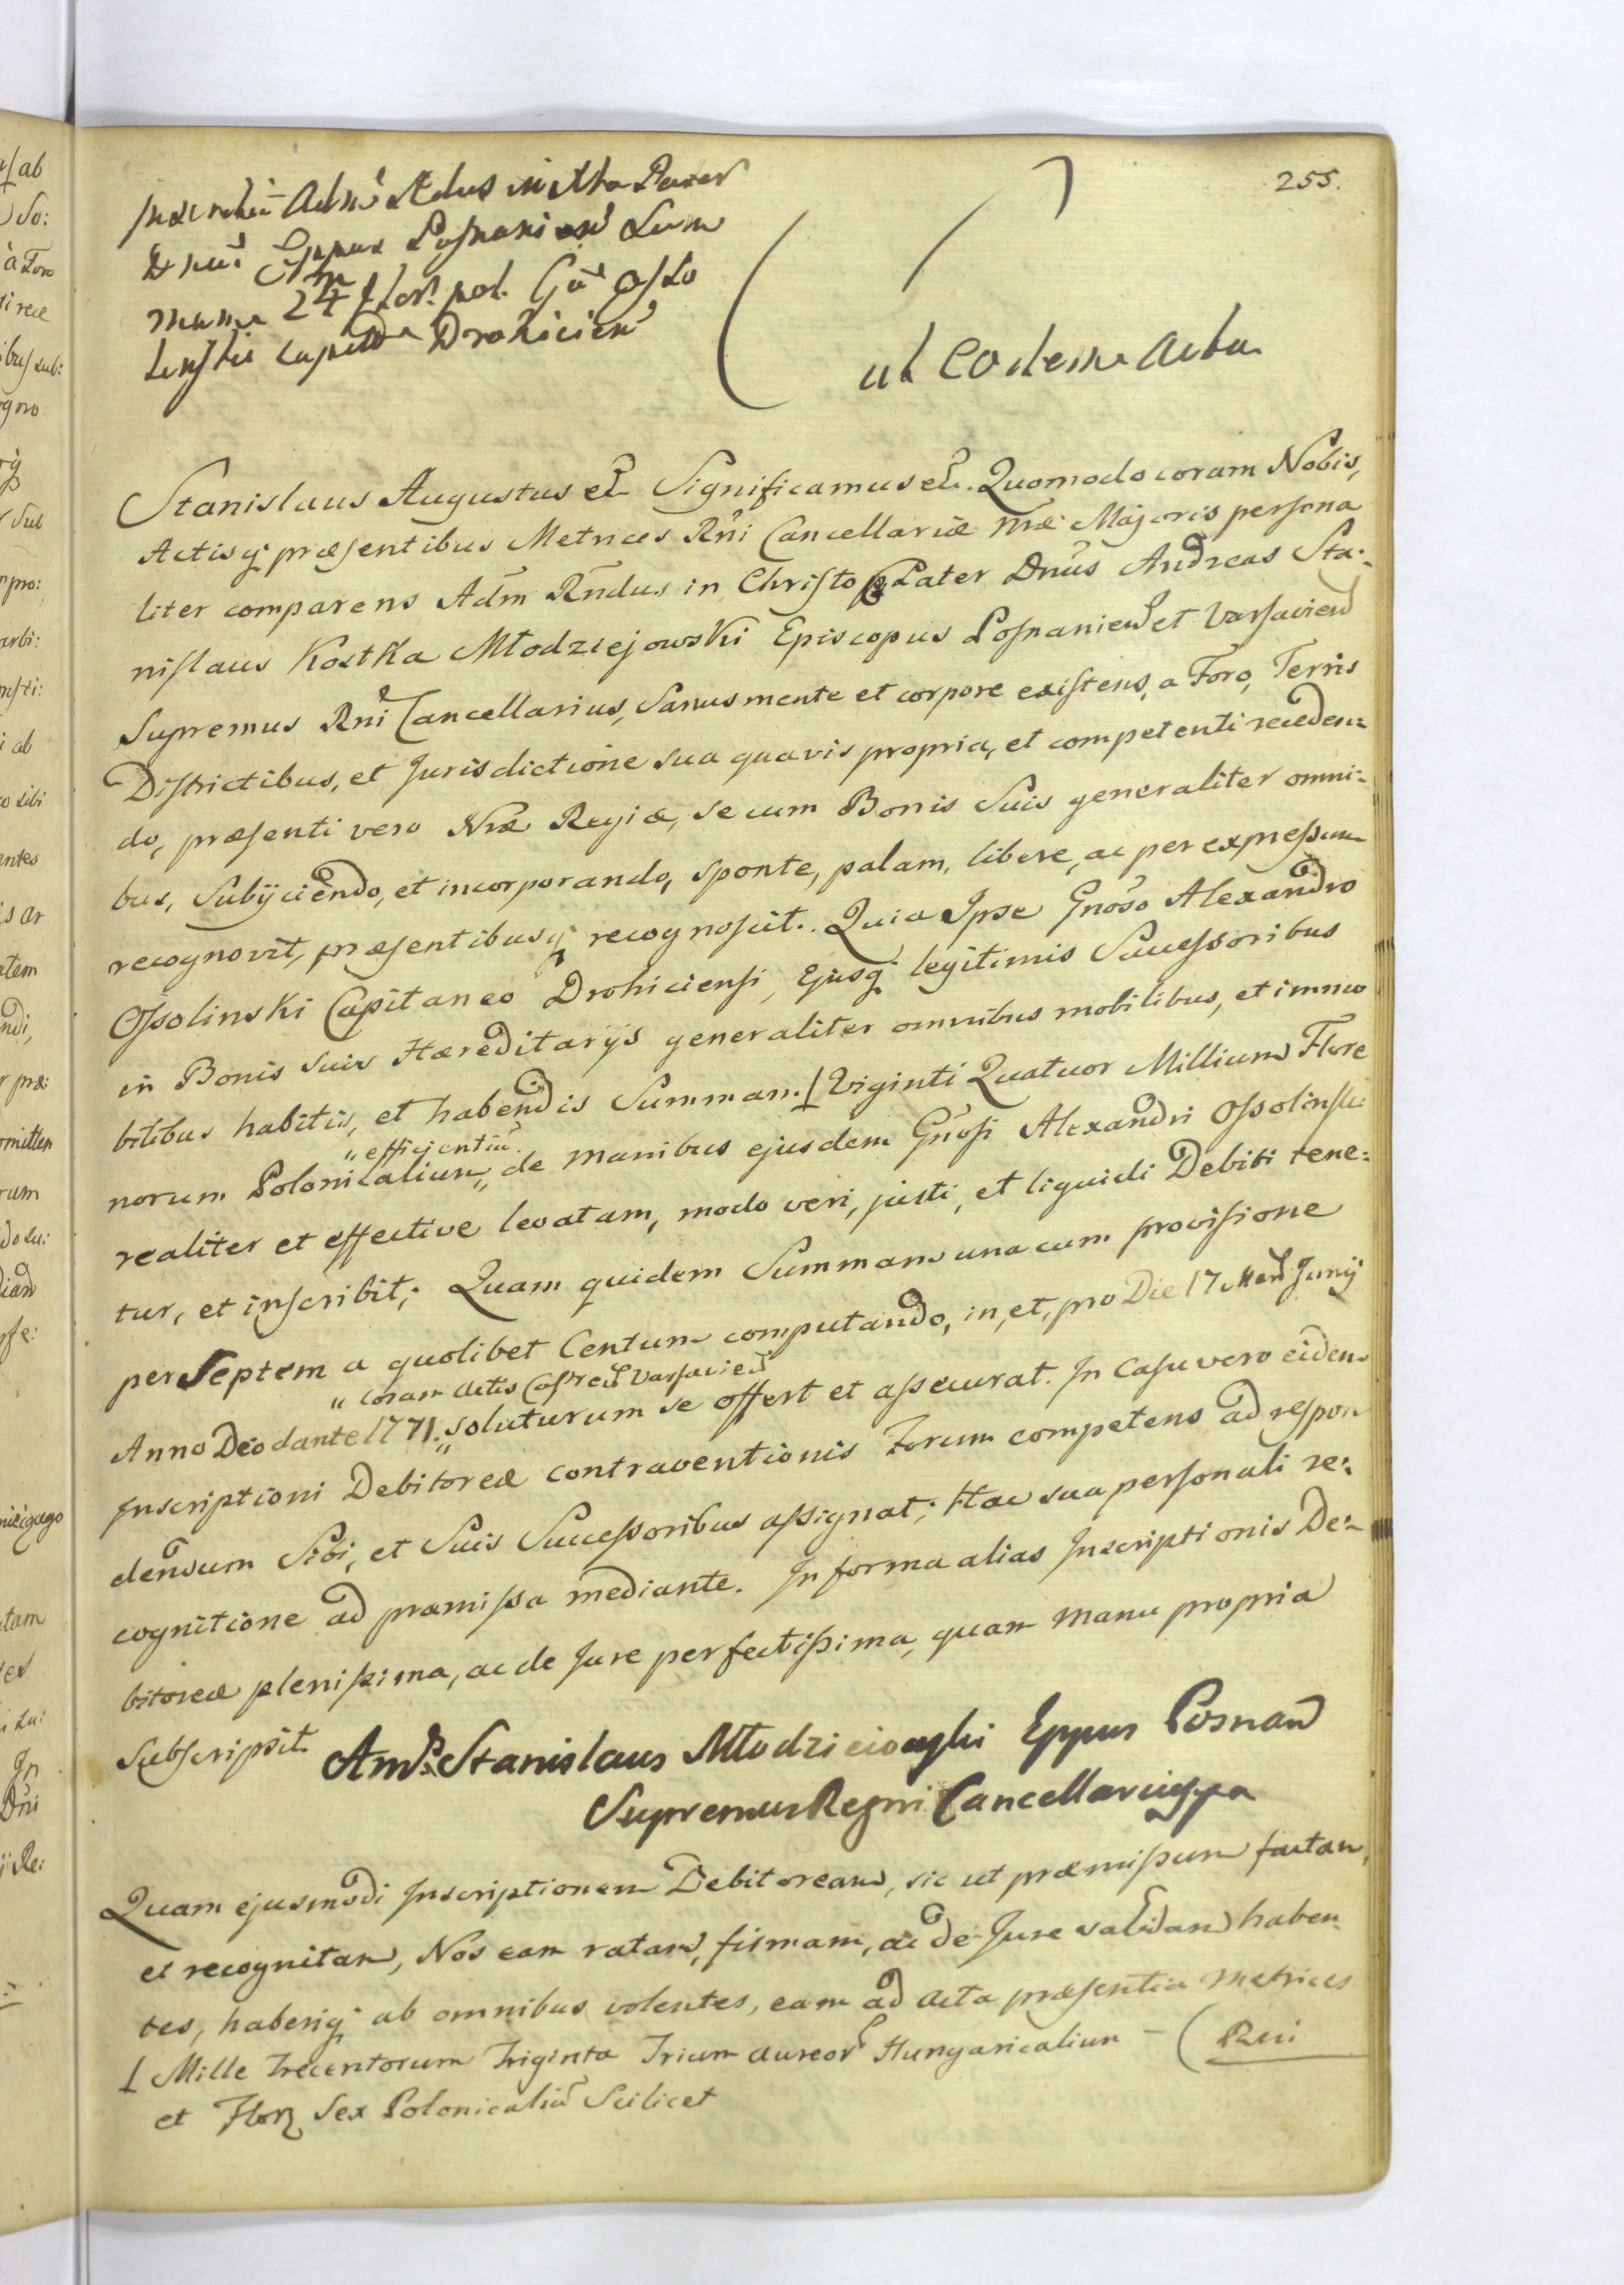 255.
Inscriptio Admo Rdus in Xto Pater
Dnus Eppus Posnanien Sum
mam 24 m flor. pol. Gso Osso
linski Capitaneo Drohicien
ad eodem Acta
Stanislaus Augustus etc Significamus etc. Quomodo coram Nobis,
Actisq præsentibus Metrices Rni Cancellariæ Nræ Majoris persona
liter comparens Adm Rndus in Christo Pater Dnus Andreas Sta:
nislaus Kostka Młodziejowski Episcopus Posnanien et Varsavien
Supremus Rni Cancellarius, Sanus mente et corpore existens, a Foro, Terris
Districtibus, et Jurisdictione sua quavis propria, et competenti receden:
do, præsenti vero Nræ Regiæ, se cum Bonis Suis generaliter omni:
bus, Subijciendo, et incorporando, sponte, palam, libere, ac per expressum
recognovit, præsentibusq recognoscit. Quia Ipse Gnoso Alexandro
Ossolinski Capitaneo Drohiciensi, Ejusq legitimis Successoribus
in Bonis suis Hæreditarijs generaliter omnibus mobilibus, et immo
bilibus habitis, et habendis Summam ⊥ Viginti Quatuor Millium Flore
norum Polonicalium „ efficientiu de manibus ejusdem Gnosi Alexandri Ossolinski
realiter et effective levatam, modo veri, justi, et liquidi Debiti tene:
tur, et inscribit; Quam quidem Summam una cum provisione
per Septem a quolibet Centum computando, in, et, pro Die 17 Men Junij
Anno Deo dante 1771. „ coram Actis Castren Varsavien soluturum se offert et assecurat. In Casu vero eidem
Inscriptioni Debitoreæ contraventionis Forum competens ad respon
densum Sibi, et Suis Successoribus assignat; Hac sua personali re:
cognitione ad præmissa mediante. In forma alias Inscriptionis De:
bitoreæ plenissima, ac de Jure perfectissima, quam manu propria
Subscripsit. And. Stanislaus Młodzieiowski Eppus Posnan
Supremus Regni Cancellarius mpa
Quam ejusmodi Inscriptionem Debitoream, sic ut præmissum factam,
et recognitam, Nos eam ratam, firmam, ac de Jure validam haben
tes, haberiq ab omnibus volentes, eam ad Acta præsentia Metrices
⊥ Mille Trecentorum Triginta Trium aureor Hungaricalium – ( Rni
et Flor Sex Polonicaliu Scilicet